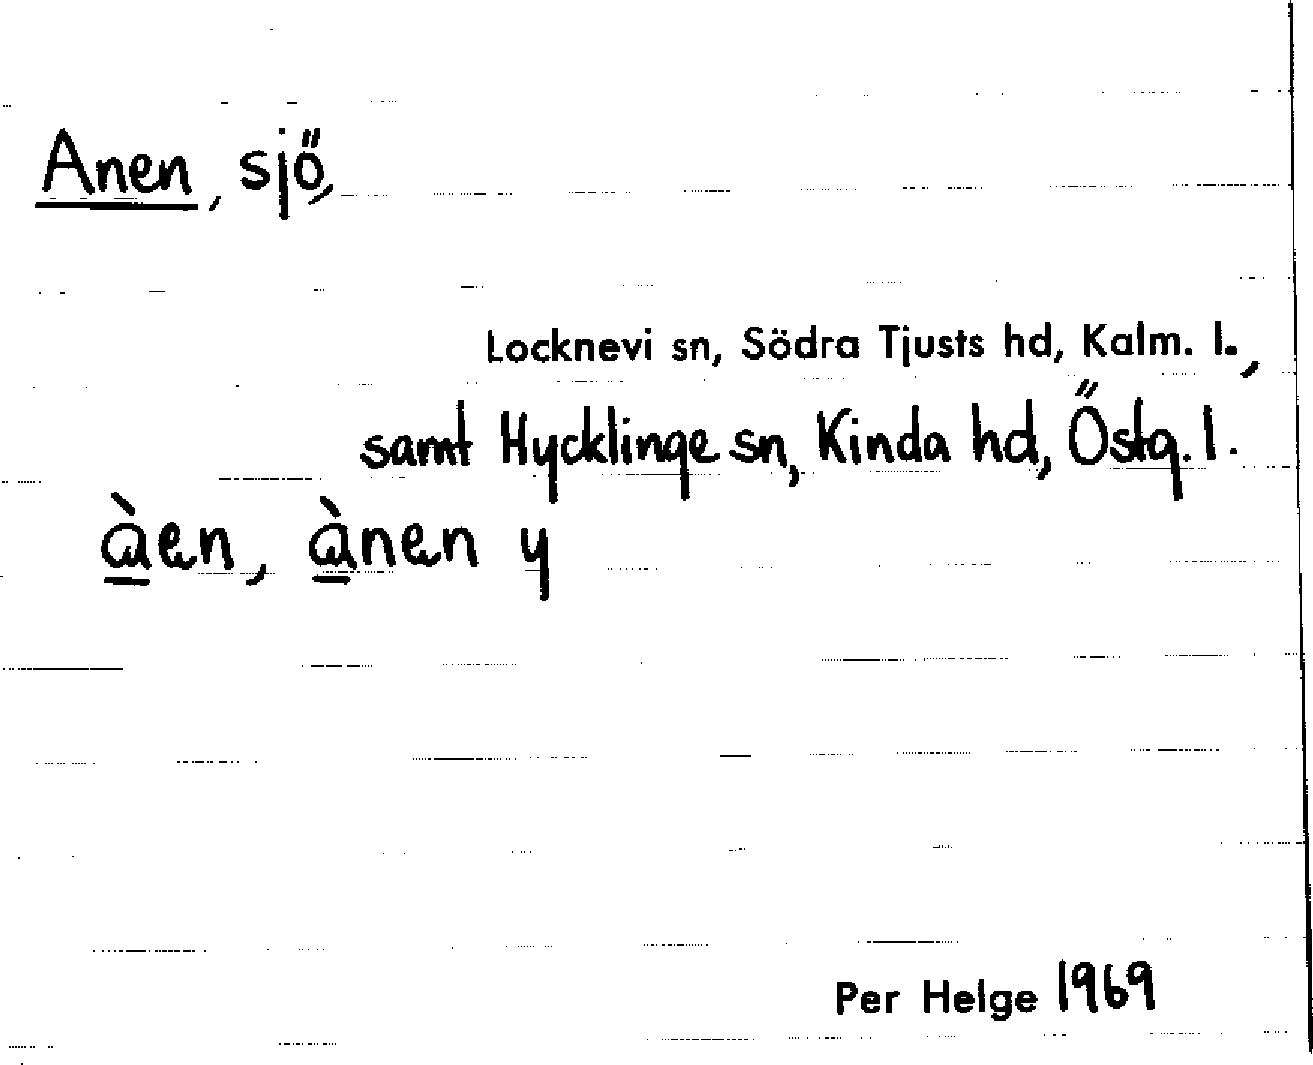 Anen, sjö,
Locknevi sn, Södra Tjusts hd, Kalm. l.,
samt Hycklinge sn, Kinda hd, Östg. l.
à̲en, à̲nen y
Per Helge 1969